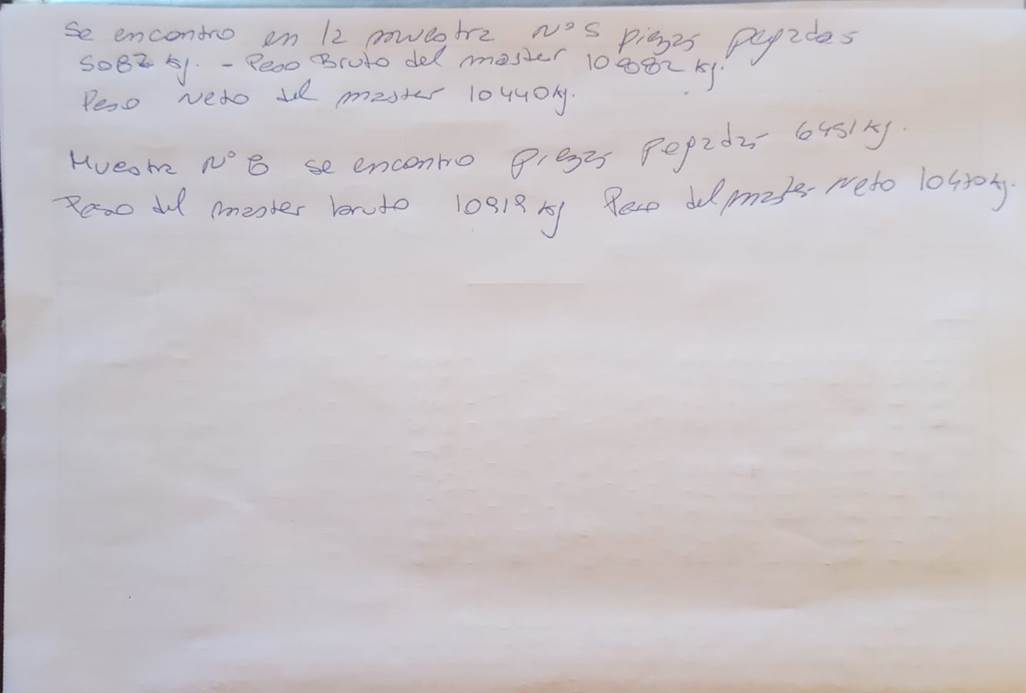 Se encontro en la muestra N° 5 piezas pegadas
5082 kg. - Peso Bruto del master 10882 kg.
Peso Neto del master 10440 kg.
Muestra N° 8 se encontro piezas pegadas 6451 kg.
Peso del master bruto 10919 kg Peso del master Neto kg.